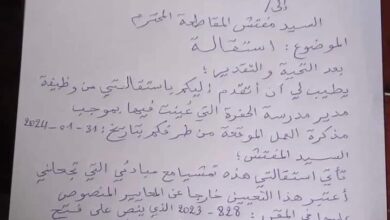 إلى /
السيد مفتش المقاطعة المحترم
الموضوع : استقالة
بعد التحية و التقدير ؛
يطيب لي أن أتقدم إليكم باستقالتي من وظيفة
مدير مدرسة الحفرة التي عُينت فيها بموجب
مذكرة العمل الموقعة من طرفكم بتاريخ : 31-01-2024
السيد المفتش ؛
تأتي استقالتي هذه تمشيا مع مبادئي التي تجعلني
أعتبر هذا التعيين خارجا عن المعايير المنصوص
828 - 2023 الذي ينص على فتح